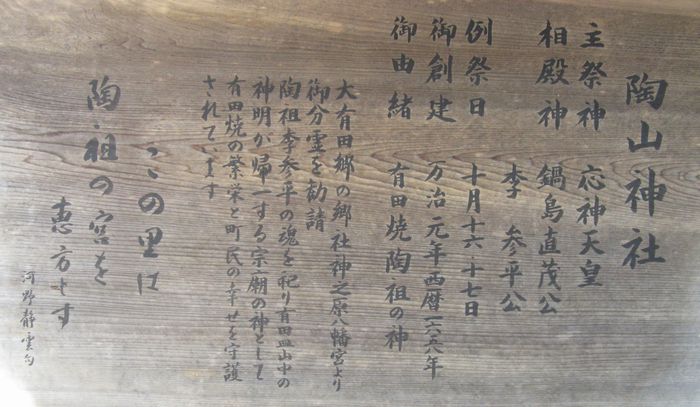 陶山神社
主祭神 応神天皇
相殿神 鍋島直茂公
李 参平公
例祭日 十月十六・十七日
御創建 万治元年西暦一六五八年
御由緒 有田焼陶祖の神
大有田郷の郷社神之原八幡宮より
御分霊を勧請
陶祖李参平の魂を祀り有田皿山中の
神明が帰一する宗廟の神として
有田焼の繁栄と町民の幸せを守護
されています
この里は
陶祖の宮を
恵方とす
河野静雲句